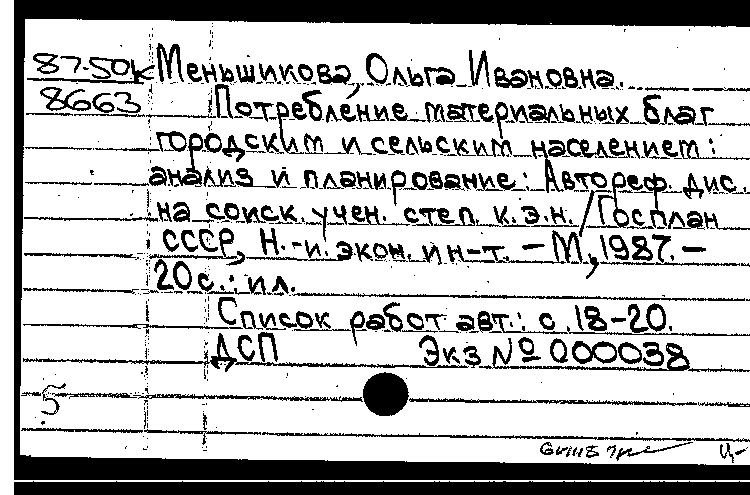 87-50к Меньшикова, Ольга Ивановна.
8663 Потребление материальных благ
городским и сельским населением:
анализ и планирование: Автореф. дис.
на соиск. учен. степ. к.э.н. / Госплан
СССР, Н.-и. экон. ин-т. – М., 1987. –
20 с.: ил.
Список работ авт.: с. 18-20.
ДСП Экз № 000038
5
ц-